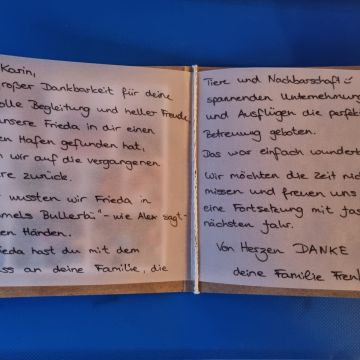 Karin,
großer Dankbarkeit für deine
olle Begleitung und heller Freude
unsere Frieda in dir einen
en Hafen gefunden hat,
n wir auf die vergangenen
re zurück.
wussten wir Frieda in
mmels Bullerbü" - wie Alex sagt -
en Händen.
ieda hast du mit dem
ss an deine Familie, die
Tiere und Nachbarschaft
spannenden Unternehmung
und Ausflügen die perfekt
Betreuung geboten.
Das war einfach wunderb
Wir möchten die Zeit nich
missen und freuen uns
eine Fortsetzung mit
nächsten Jahr.
Von Herzen DANKE
deine Familie Fren